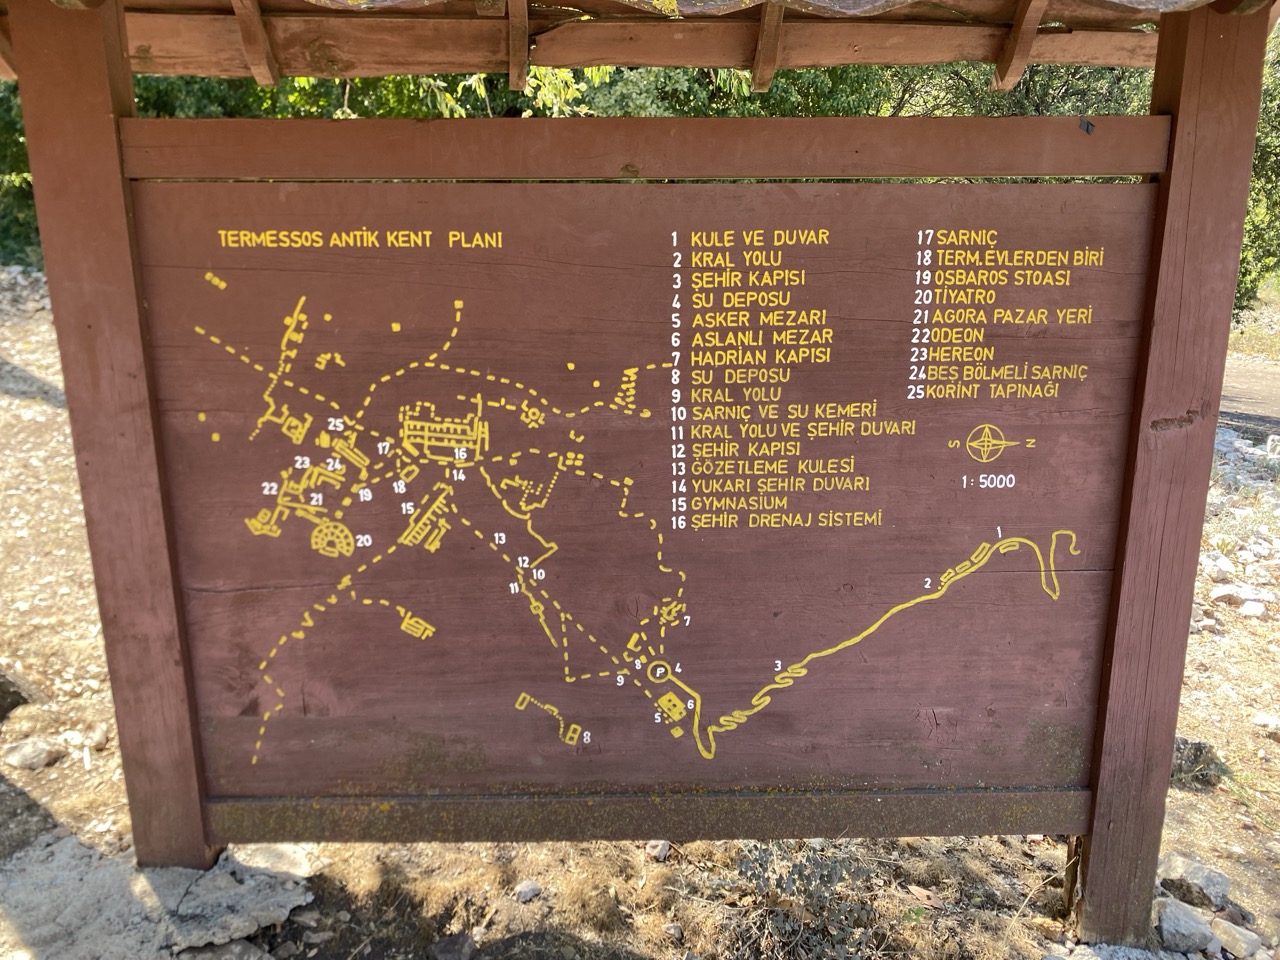 TERMESSOS ANTİK KENT PLANI
1 KULE VE DUVAR
2 KRAL YOLU
3 ŞEHİR KAPISI
4 SU DEPOSU
5 ASKER MEZARI
6 ASLANLI MEZAR
7 HADRİAN KAPISI
8 SU DEPOSU
9 KRAL YOLU
10 SARNIÇ VE SU KEMERİ
11 KRAL YOLU VE ŞEHİR DUVARI
12 ŞEHİR KAPISI
13 GÖZETLEME KULESİ
14 YUKARI ŞEHİR DUVARI
15 GYMNASİUM
16 ŞEHİR DRENAJ SİSTEMİ
17 SARNIÇ
18 TERM.EVLERDEN BİRİ
19 OSBAROS STOASI
20 TİYATRO
21 AGORA PAZAR YERİ
22 ODEON
23 HEREON
24 BEŞ BÖLMELİ SARNIÇ
25 KORİNT TAPINAĞI
S N
1 : 5000
1
2
3
25
17
16
14
23
24
18
19
22
21
15
20
13
12
10
11
7
8
P
4
9
6
5
8